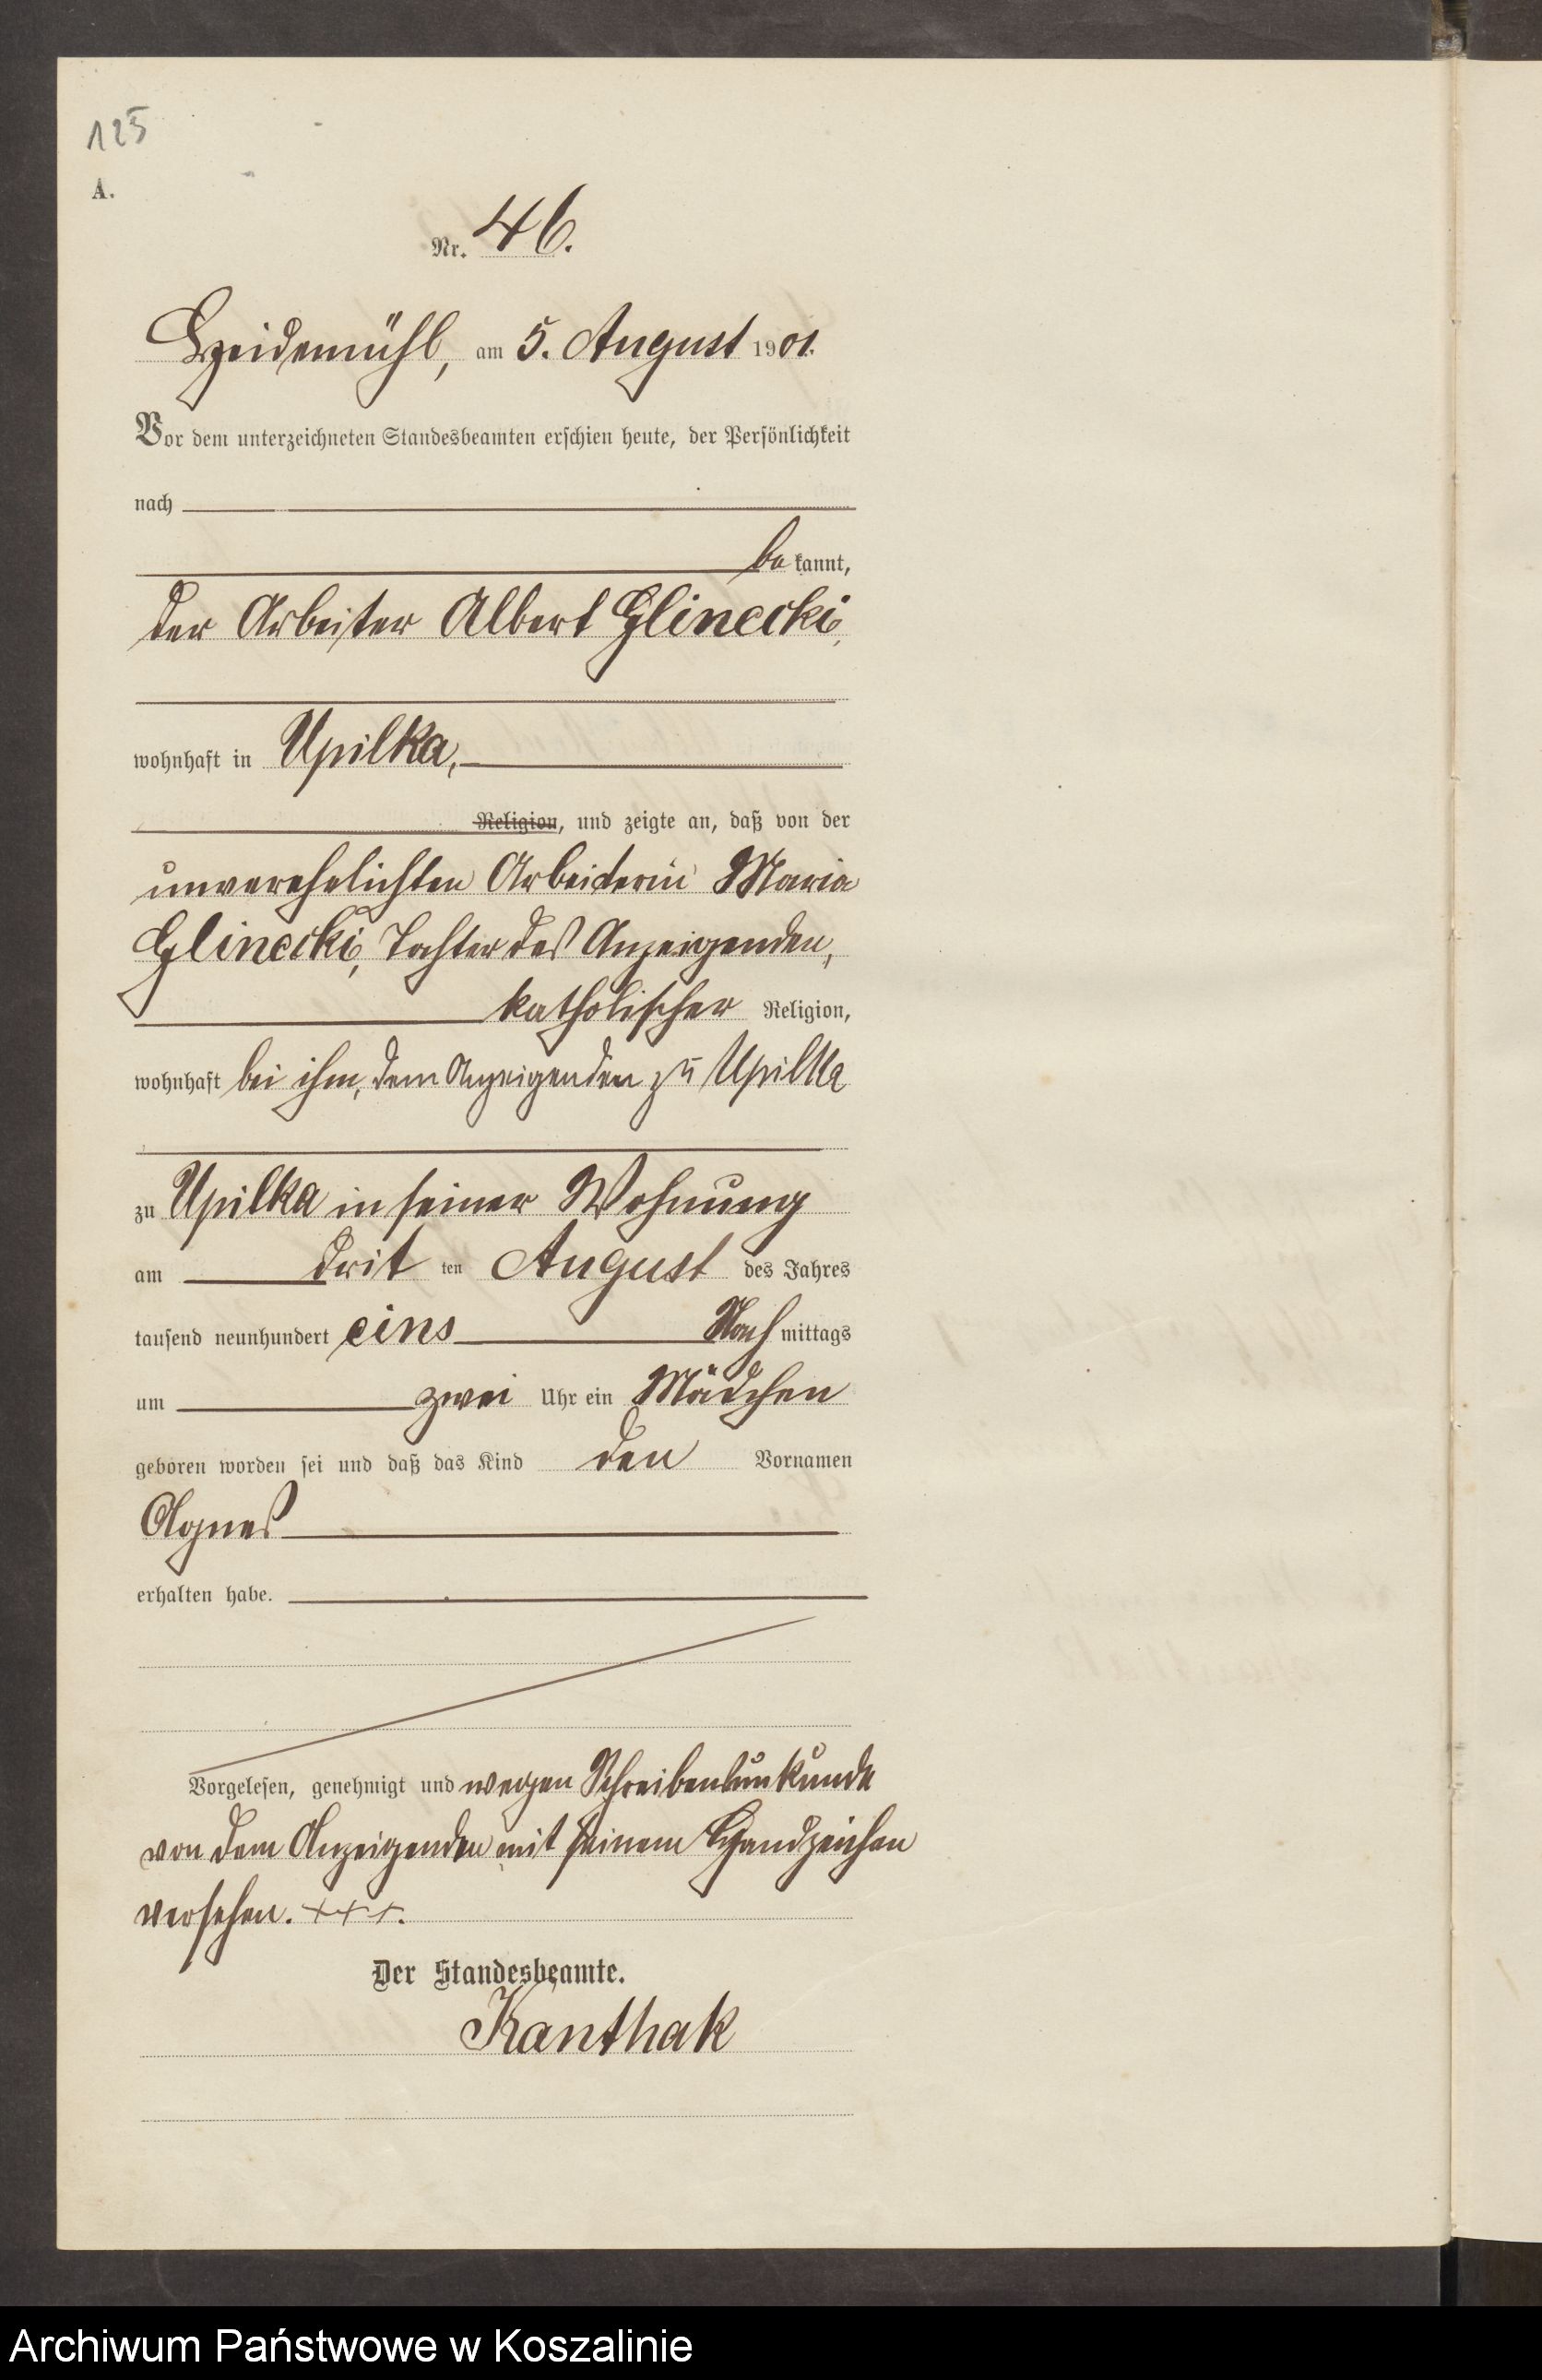 125
A.
Nr. 46.
Heidemühl, am 5. August 1901.
Vor dem unterzeichneten Standesbeamten erschien heute, der Persönlichkeit
nach
be kannt,
der Arbeiter Albert Glinecki,
wohnhaft in Upilka,
Religion, und zeigte an, daß von der
unverehelichten Arbeiterin Maria
Glinecki, Tochter des Anzeigenden,
katholischer Religion,
wohnhaft bei ihm, dem Anzeigenden zu Upilka
zu Upilka in seiner Wohnung
am drit ten August des Jahres
tausend neunhundert eins Nach mittags
um zwei Uhr ein Mädchen
geboren worden sei und daß das Kind den Vornamen
Agnes
erhalten habe.
Vorgelesen, genehmigt und wegen Schreibensunkunde
von dem Anzeigenden mit seinem Handzeichen
versehen. +++.
Der Standesbeamte.
Kanthak
Archiwum Państwowe w Koszalinie